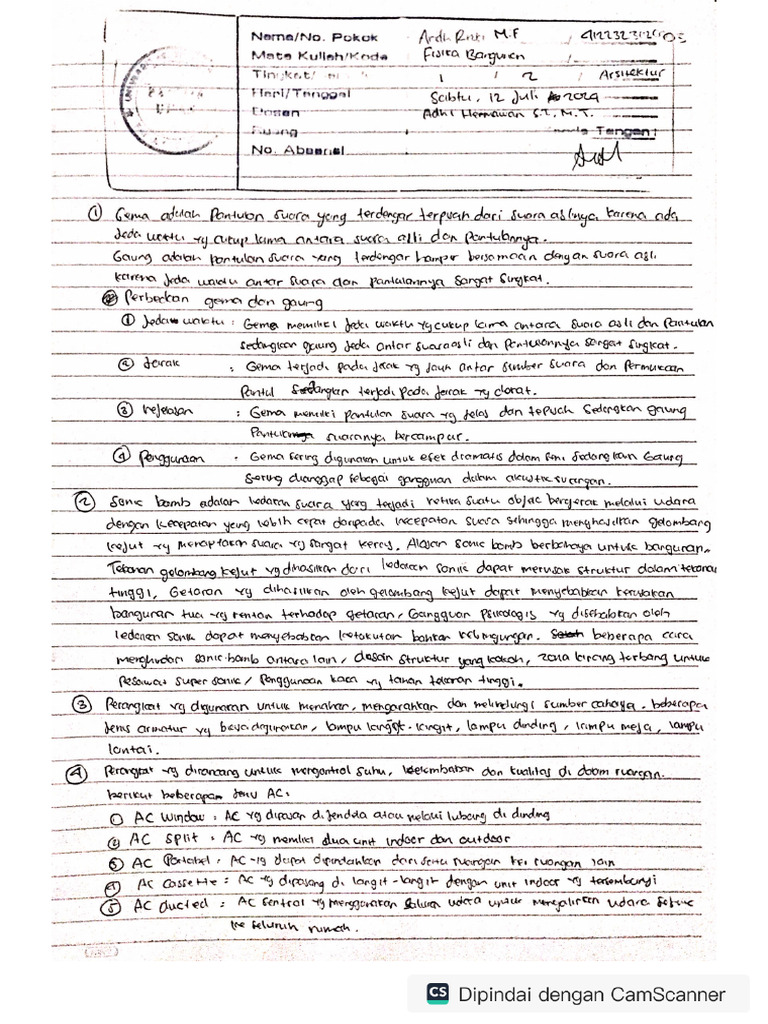 Nama/No. Pokok : Ardh Rizki M.F / 4122323121003
Mata Kuliah/Kode : Fisika Bangunan
Tingkat/ : 1 / 2 / Arsitektur
Hari/Tanggal : Sabtu, 12 Juli 2024
Dosen : Adhi Hermawan S.T, M.T.
Ruang : Tangan
No. Absensi
① Gema adalah Pantulan suara yang terdengar terpisah dari suara aslinya karena ada
Jeda waktu yg cukup lama antara suara asli dan Pantulannya.
Gaung adalah pantulan suara yang terdengar hampir bersamaan dengan suara asli
karena Jeda waktu antar suara dan pantulannya sangat singkat.
Perbedaan gema dan gaung
① Jeda waktu : Gema memiliki Jeda waktu yg cukup lama antara suara asli dan Pantulan
sedangkan gaung Jeda antar suara asli dan Pantulannya sangat singkat.
② Jarak : Gema terjadi pada Jarak yg Jauh antar sumber suara dan Permukaan
Pantul Sedangkan terjadi pada Jarak yg dekat.
③ Kejelasan : Gema memiliki pantulan suara yg Jelas dan tepisah Sedangkan gaung
Pantulan suaranya bercampur.
④ Penggunaan : Gema sering digunakan untuk efek dramatis dalam seni sedangkan Gaung
Sering dianggap sebagai gangguan dalam akustik ruangan.
② Sonic bomb adalah ledakan suara yang terjadi ketika suatu objek bergerak melalui udara
dengan Kecepatan yang lebih cepat daripada kecepatan suara sehingga menghasilkan gelombang
kejut yg menciptakan suara yg sangat keras. Alasan sonic bomb berbahaya untuk bangunan.
Tekanan gelombang kejut yg dihasilkan dari ledakan sonik dapat merusak struktur dalam tekanan
tinggi, Getaran yg dihasilkan oleh gelombang kejut dapat menyebabkan kerusakan
bangunan tua yg rentan terhadap getaran, Gangguan Psikologis yg disebabkan oleh
ledakan sonik dapat menyebabkan ketakutan bahkan kebingungan. beberapa cara
menghindari sonic bomb antara lain, desain struktur yang kokoh, zona larang terbang untuk
Pesawat super sonic, Penggunaan kaca yg tahan tekanan tinggi.
③ Perangkat yg digunakan untuk menahan, mengarahkan dan melindungi sumber cahaya. beberapa
Jenis armatur yg biasa digunakan, lampu langit-langit, lampu dinding, lampu meja, lampu
lantai.
④ Perangkat yg dirancang untuk mengontrol suhu, kelembaban dan kualitas di dalam ruangan.
berikut beberapa Jenis AC:
① AC Window : AC yg dipasan di Jendela atau melalui lubang di dinding
② AC Split : AC yg memiliki dua unit indoor dan outdoor
③ AC Portabel : AC yg dapat dipindahkan dari satu ruangan ke ruangan lain
④ AC Cassette : AC yg dipasang di langit-langit dengan unit indoor yg tersembunyi
⑤ AC ducted : AC Sentral yg menggunakan saluran udara untuk mengalirkan udara
ke seluruh rumah.
CS Dipindai dengan CamScanner